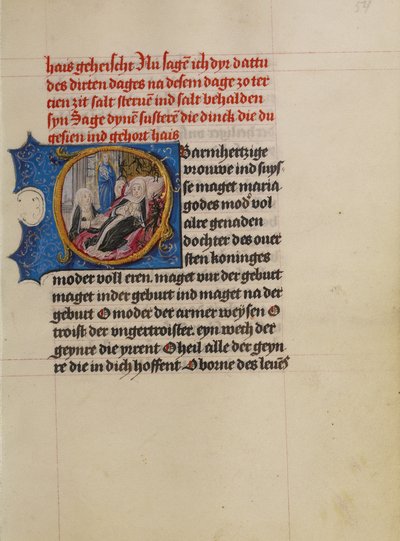 54
hais geheischt Nu sagē ich dyr dattu
des dirten dages na desem dage zo ter
cien zit salt steruē ind salt behalden
syn Sage dynē susterē die dinck die du
gesien ind gehort hais
Barmhertzige
vrouwe ind suys-
se maget maria
godes mod' vol
alre genaden
dochter des ouer
sten koninges
moder voll eren. maget vur der geburt
maget inder geburt ind maget na der
geburt O moder der armer weysen O
troist der vngertroister. eyn wech der
geynre die yrrent O heil alle der geyn
re die in dich hoffent O borne des leuēs